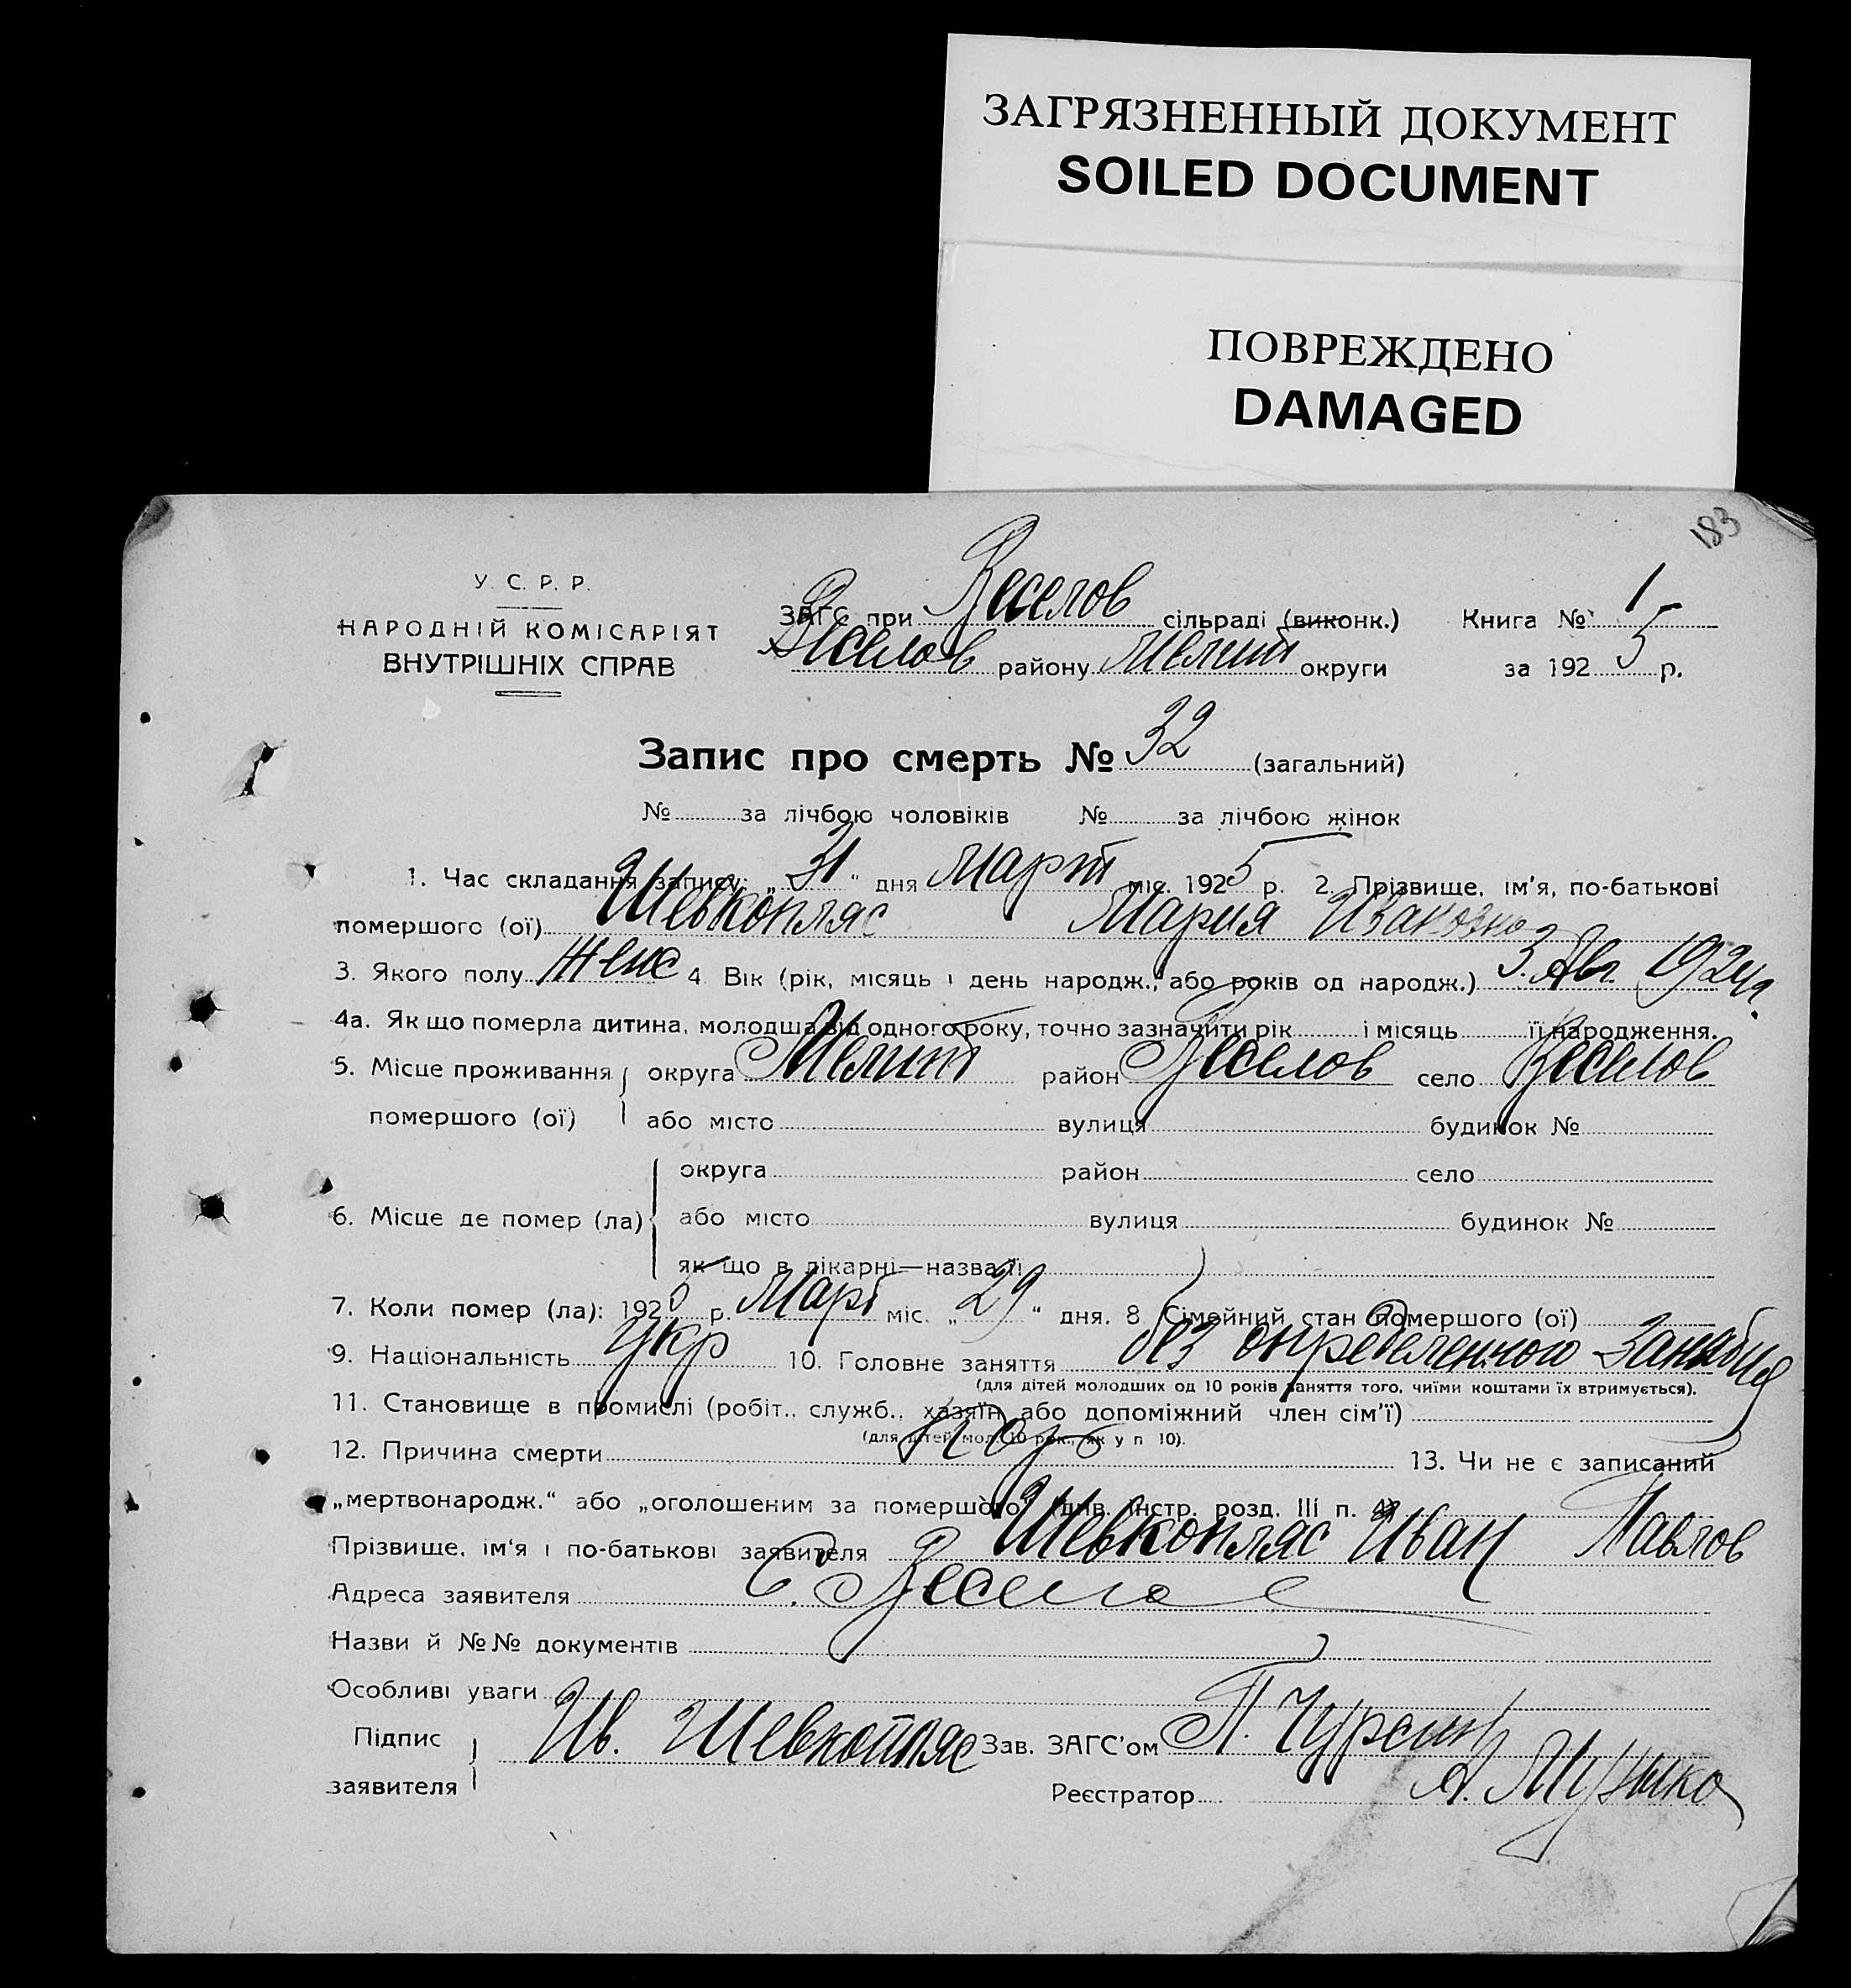 ЗАГРЯЗНЕННЫЙ ДОКУМЕНТ
SOILED DOCUMENT
ПОВРЕЖДЕНО
DAMAGED
183
У. С. Р. Р.
НАРОДНІЙ КОМІСАРІЯТ
ВНУТРІШНІХ СПРАВ
ЗАГС при Веселов сільраді (виконк.) Книга № 1
Веселов району Мелит округи за 1925 р.
Запис про смерть № 32 (загальний)
№ за лічбою чоловіків № за лічбою жінок
1. Час складання запису: „31“ дня Март міс. 1925 р. 2. Прізвище, ім'я, по-батькові
помершого (ої) Шевкопляс Мария Ивановна
3. Якого полу Женс 4 Вік (рік, місяць і день народж., або років од народж.) 3. Авг. 1924 г.
4а. Як що померла дитина, молодша від одного року, точно зазначити рік і місяць її народження.
5. Місце проживання округа Мелит район Веселов село Веселов
помершого (ої) або місто вулиця будинок №
округа район село
6. Місце де помер (ла) або місто вулиця будинок №
як що в лікарні—назва її
7. Коли помер (ла): 1925 р. Март міс. „29“ дня. 8 Сімейний стан помершого (ої)
9. Національність Укр 10. Головне заняття без определенного
(для дітей молодших од 10 років заняття того, чиїми коштами їх втримується).
11. Становище в промислі (робіт., служб., хазяїн, або допоміжний член сім'ї)
(для дітей мол. 10 рок., як у п 10).
12. Причина смерти 13. Чи не є записаний
„мертвонародж.“ або „оголошеним за помершого“ (див. інстр. розд. III п. 4)
Прізвище, ім'я і по-батькові заявителя Шевкопляс Иван Павлов
Адреса заявителя С. Веселое
Назви й №№ документів
Особливі уваги
Підпис
заявителя Ив. Шевкопляс Зав. ЗАГС'ом П. Чурсин
Реєстратор А. Музыка